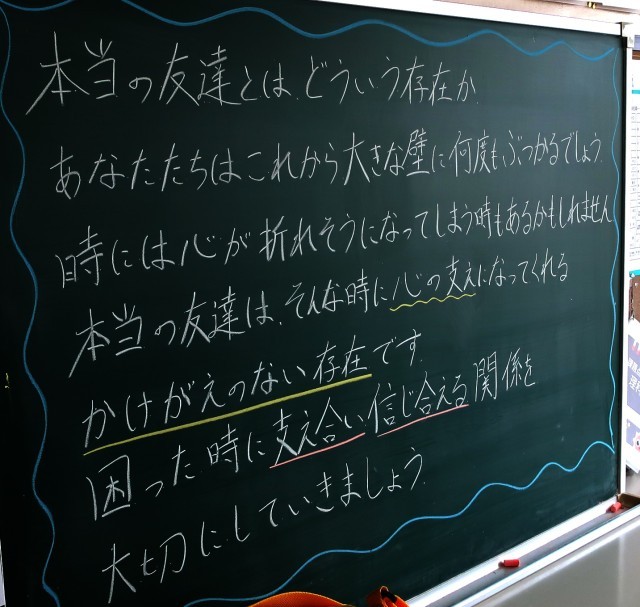 本当の友達とは、どういう存在か、
あなたたちはこれから大きな壁に何度もぶつかるでしょう。
時には心が折れそうになってしまう時もあるかもしれません
本当の友達は、そんな時に心の支えになってくれる
かけがえのない存在です。
困った時に支え合い信じ合える関係を
大切にしていきましょう。